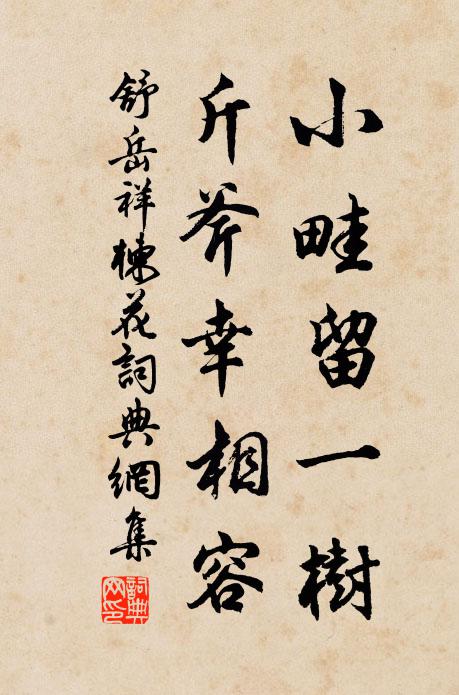 小畦留一樹
斤斧幸相容
舒岳祥楝花詞典網集
詞典網印